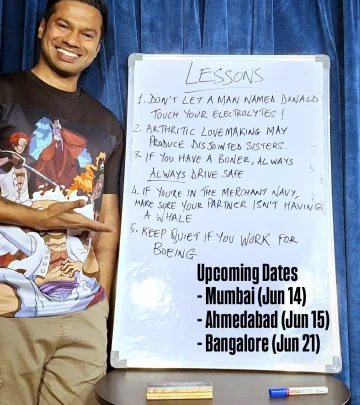 LESSONS
1. DON'T LET A MAN NAMED DONALD
TOUCH YOUR ELECTROLYTES!
2. ARTHRITIC LOVEMAKING MAY
PRODUCE DISJOINTED SISTERS.
3. IF YOU HAVE A BONER, ALWAYS
ALWAYS DRIVE SAFE
4. IF YOU'RE IN THE MERCHANT NAVY,
MAKE SURE YOUR PARTNER ISN'T HAVING
A WHALE
5. KEEP QUIET IF YOU WORK FOR
BOEING.
Upcoming Dates
- Mumbai (Jun 14)
- Ahmedabad (Jun 15)
- Bangalore (Jun 21)